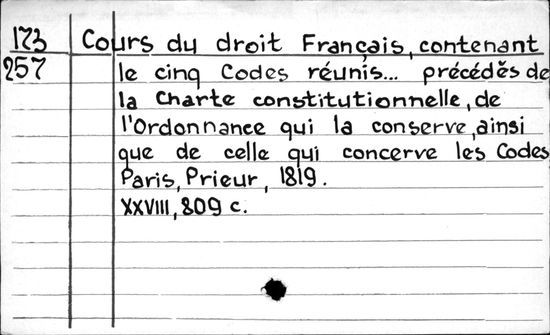 173 Cours du droit Français, contenant
257 le cinq Codes réunis... précédés de
la Charte constitutionnelle, de
l'Ordonnance qui la conserve, ainsi
que de celle qui concerve les Codes
Paris, Prieur, 1819.
XXVIII, 809 c.